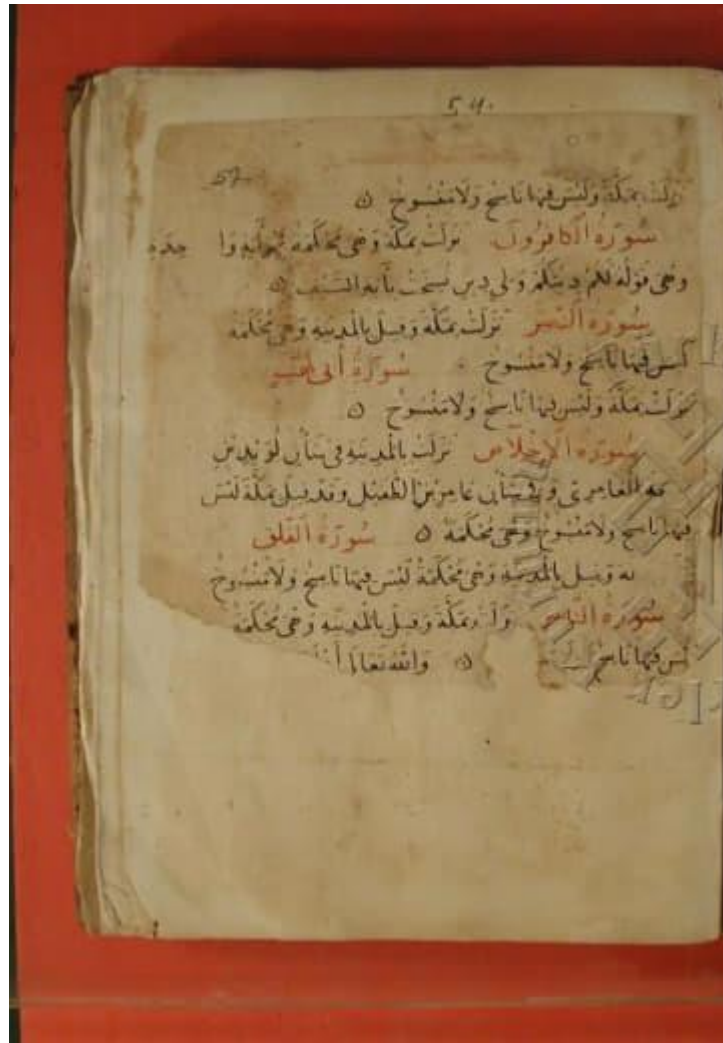 54.
57
نزلت بمكة وليس فيها ناسخ ولا منسوخ ن
سورة الكافرون نزلت بمكة وهي محكمة إلا آية واحدة
وهي قوله لكم دينكم ولي دين نسخت بآية السيف ن
سورة النصر نزلت بمكة وقيل بالمدينة وهي محكمة
ليس فيها ناسخ ولا منسوخ سورة أبي لهب
نزلت بمكة وليس فيها ناسخ ولا منسوخ ن
سورة الإخلاص نزلت بالمدينة في شأن
العامري وفي شأن عامر بن الطفيل وقد قيل بمكة ليس
فيها ناسخ ولا منسوخ وهي محكمة ن سورة الفلق
وقيل بالمدينة وهي محكمة ليس فيها ناسخ ولا منسوخ
سورة الناس نزلت بمكة وقيل بالمدينة وهي محكمة
ليس فيها ناسخ ن والله تعالى